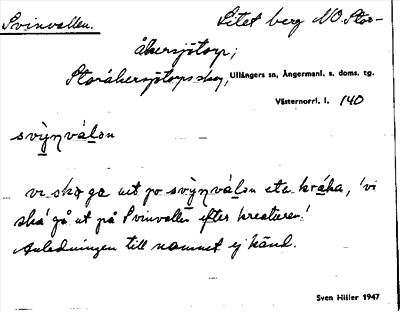 Svinvallen. Litet berg NO. Stor-
åkersjötorp;
Storåkersjötorps skog, Ullångers sn, Ångermanl. s. doms. tg.
Västernorrl. l. 140
svỳnválən
ve ska ga ut po svỳnválən eta kráka, 'vi
ska' gå ut på Svinvallen efter kreaturen.'
Anledningen till namnet ej känd.
Sven Hiller 1947